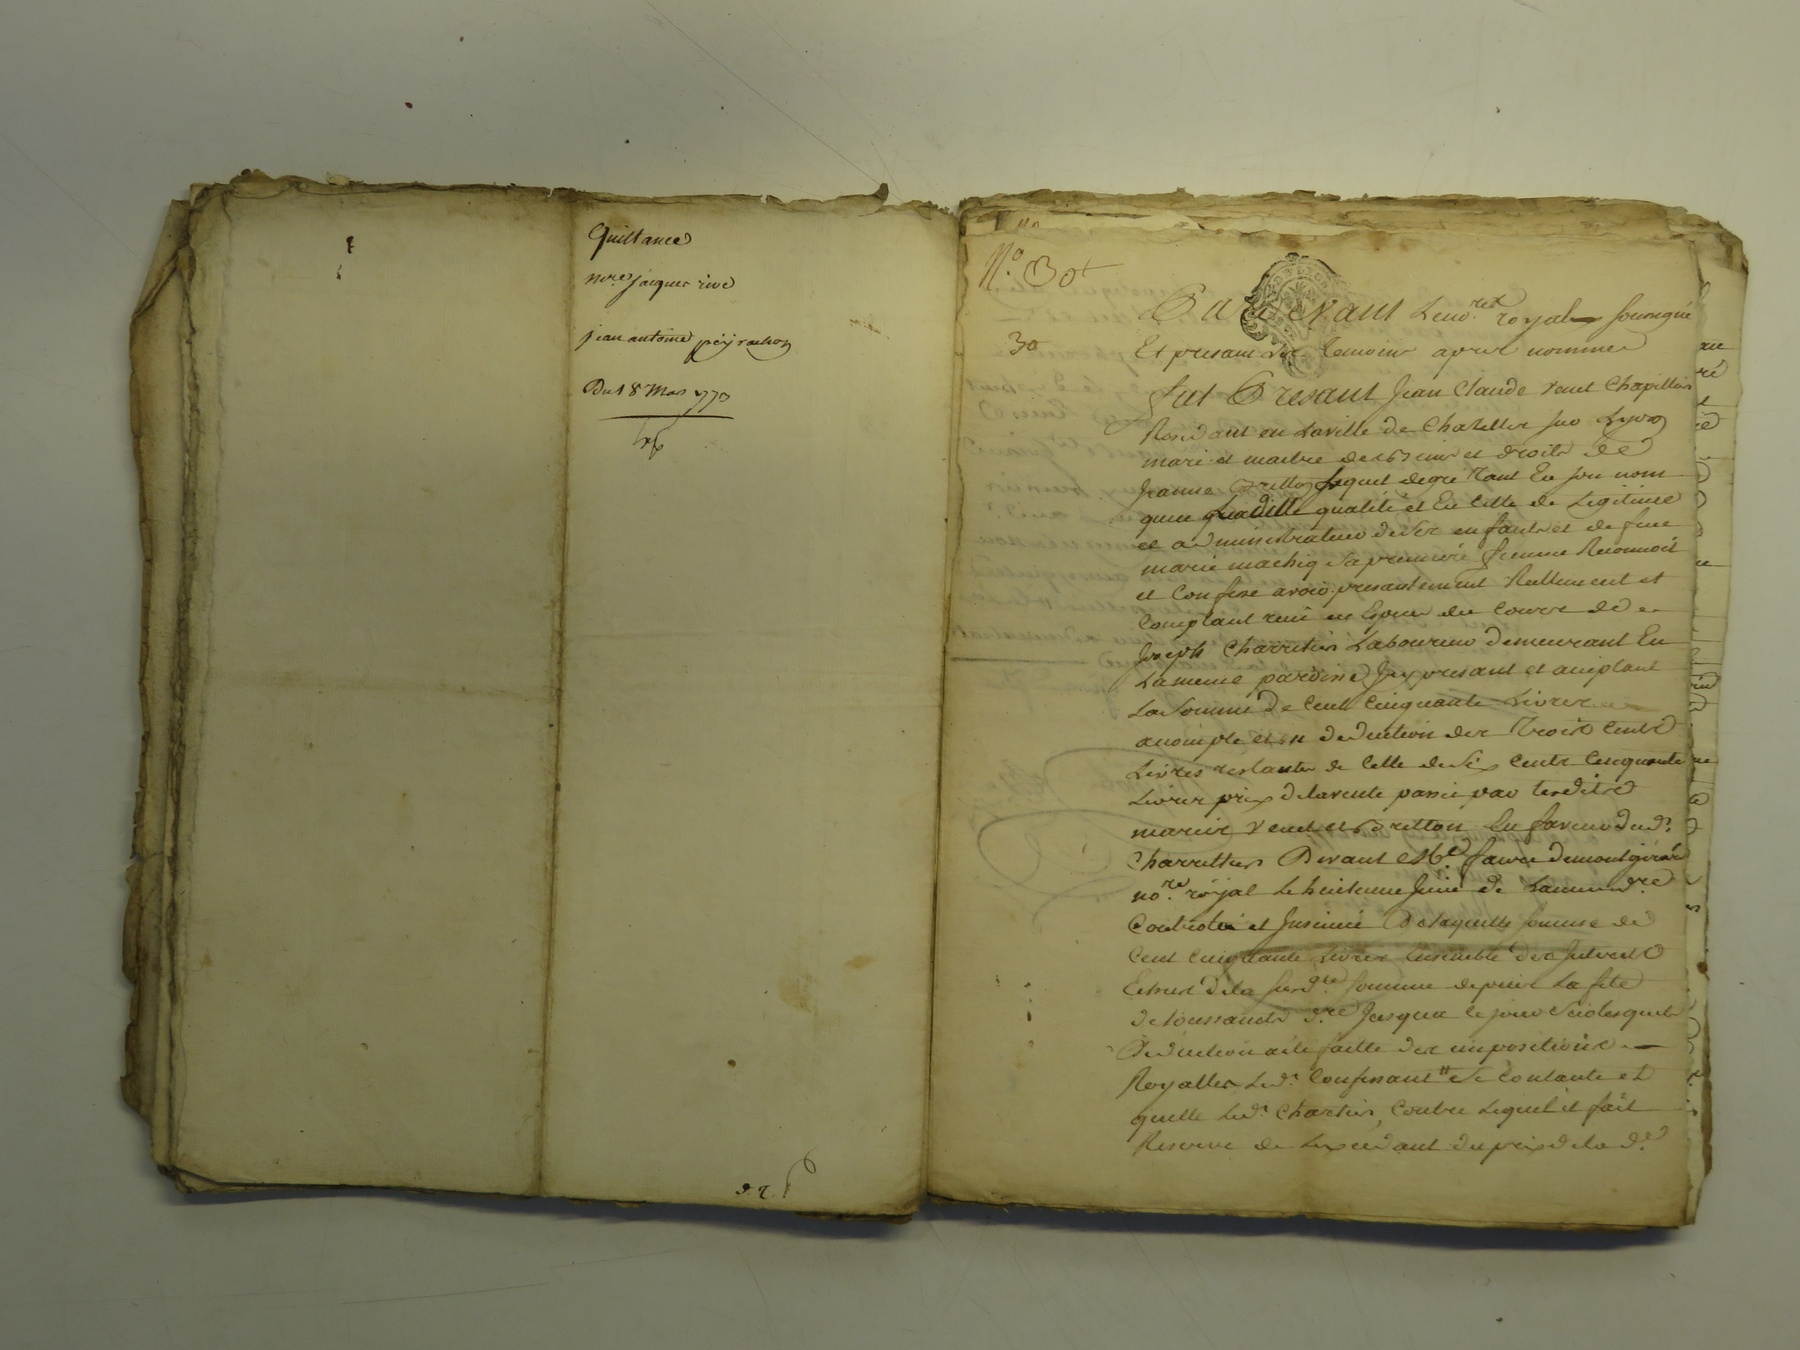 Quittance
mre jacques rive
jean antoine peyrachon
Du 18 Mars 1773
N.° 30
30
Pardevant Le no.re royal soussigné
Et presant des temoins apres nommes
fut Presant Jean Claude venet Chapellier
Residant en La ville de Chazelles sur Lyon
mari et maitre des biens et droits de
Jeanne Britton Lequel degré tant En son nom
quen Laditte qualité et En Celle de Legitime
administrateur de ses enfants et de feue
marie sa premiere femme Reconnoit
et Confesse avoir presantement Reellement et
Comptant reçû en Especes du Cours de
Joseph Charretier Laboureur demeurant En
La meme paroisse Icy presant et aceptant
La Somme de Cent Cinquante Livres
acompte et en deduction des Trois Cents
Livres restantes de Celle de Six Cents Cinquante
Livres prix de la vente passée par lesdits
mariés venet et Britton En faveur dud.
Charrettier Devant Me. faure de montgirard
no.re royal Le huitieme Juin de Lannée d.re
Controllé et Insinué De laquelle somme de
Cent Cinquante Livres Ensemble des Interets
de la sud.te somme depuis La fete
de toussaints d.re Jusqua ce jour
Deduction faitte des impositions
Royalles Led. Confessant se Contante et
quitte Led. Chartier, Contre Lequel il fait
Reserve de Lexcedant du prix de la d.e